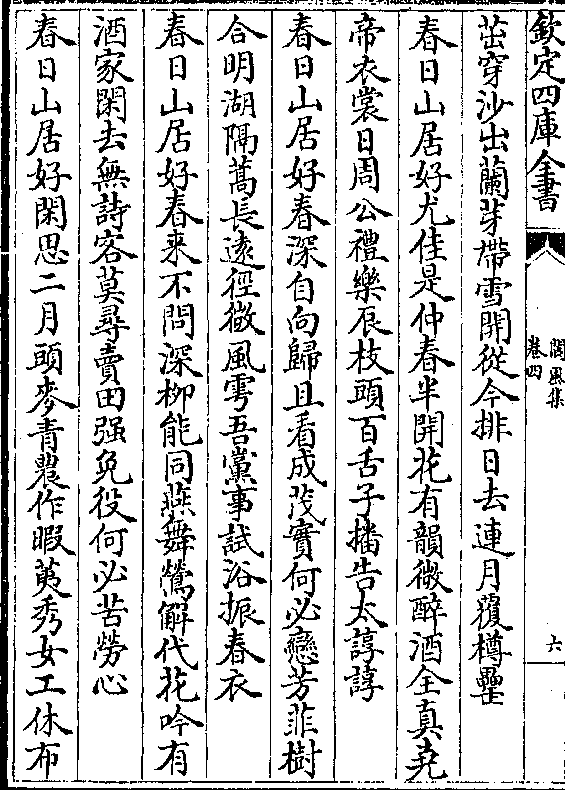 欽定四庫全書
閬風集
卷四
六
茁穿沙出蘭芽帶雪開從今排日去連月覆樽罍
春日山居好尤佳是仲春半開花有韻微醉酒全真堯
帝衣裳日周公禮樂辰枝頭百舌子播告太諄諄
春日山居好春深自向歸且看成茂實何必戀芳菲樹
合明湖隔蒿長遠徑微風雩吾黨事試浴振春衣
春日山居好春来不問深柳能同燕舞鶯解代花吟有
酒家閑去無詩客莫尋賣田强免役何必苦勞心
春日山居好閑思二月頭麥青農作暇荑秀女工休布